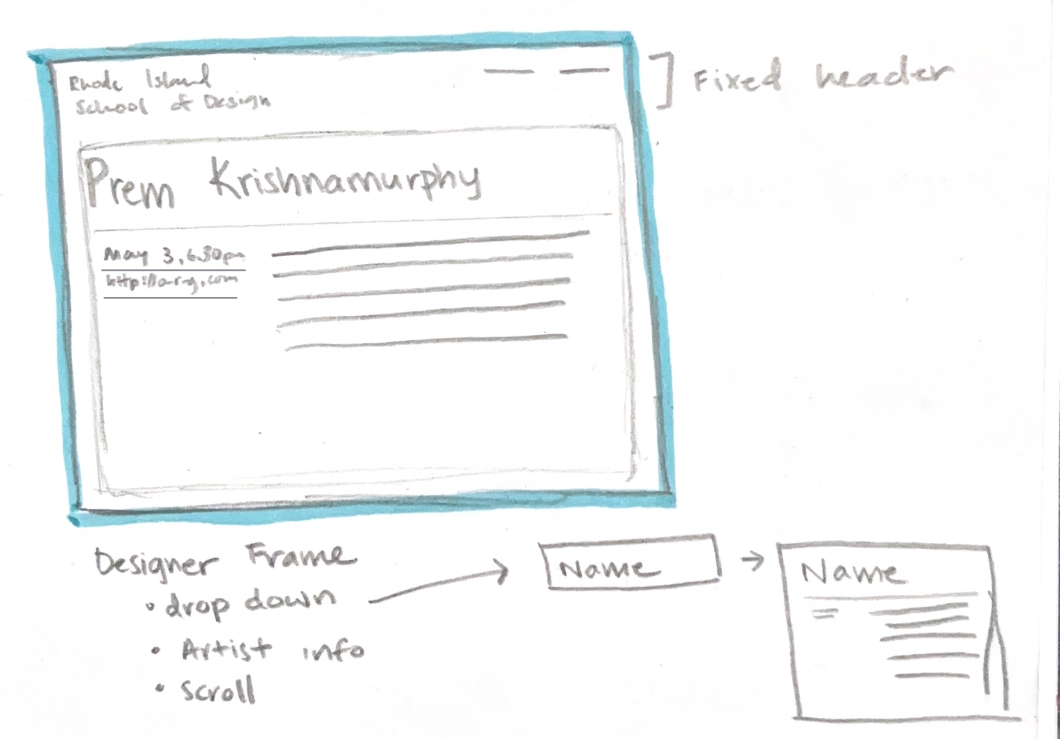 Rhode Island
School of Design
] Fixed header
Prem Krishnamurphy
May 3, 6.30pm
http://o-r-g.com
Designer Frame
• drop down
• Artist info
• scroll
Name
Name